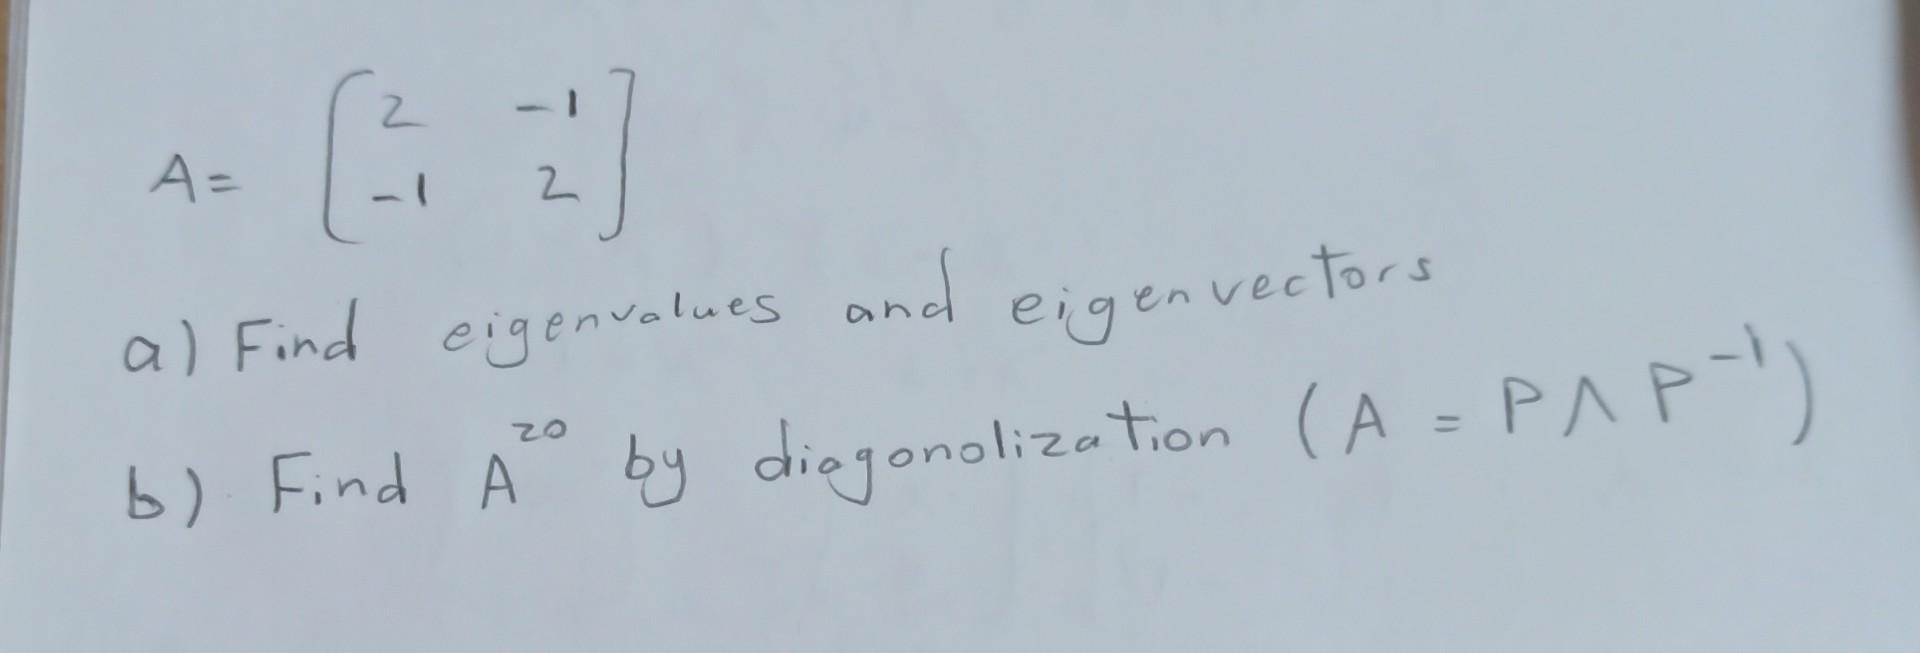 A = [ 2 -1
-1 2 ]
a) Find eigenvalues and eigenvectors
b) Find A²⁰ by diagonolization (A = PΛP⁻¹)